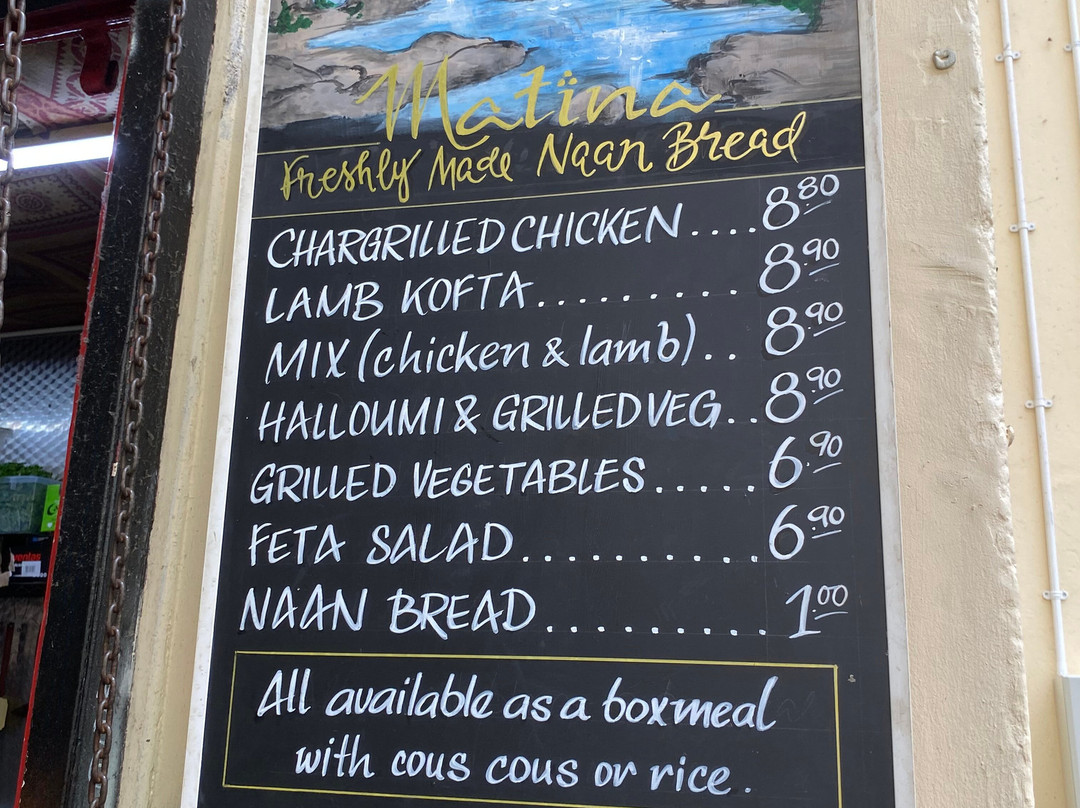 Matina
Freshly Made Naan Bread
CHARGRILLED CHICKEN....8.80
LAMB KOFTA.......... 8.90
MIX (chicken & lamb).. 8.90
HALLOUMI & GRILLED VEG..8.90
GRILLED VEGETABLES.....6.90
FETA SALAD..........6.90
NAAN BREAD.......... 1.00
All available as a box meal
with cous cous or rice.